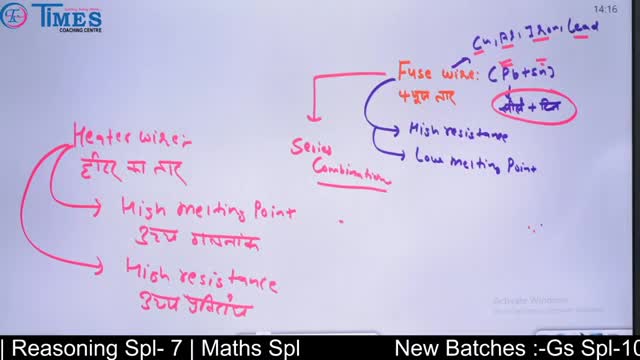 TIMES
COACHING CENTRE
14:16
Cu, Al, Iron, Lead
Fuse wire: (Pb+Sn)
फ्यूज तार
सीसा + टिन
High resistance
Low melting Point
Series
Combination
Heater wire:-
हीटर का तार
High melting Point
उच्च गलनांक
High resistance
उच्च प्रतिरोध
Activate Windows
| Reasoning Spl- 7 | Maths Spl New Batches :-Gs Spl-10